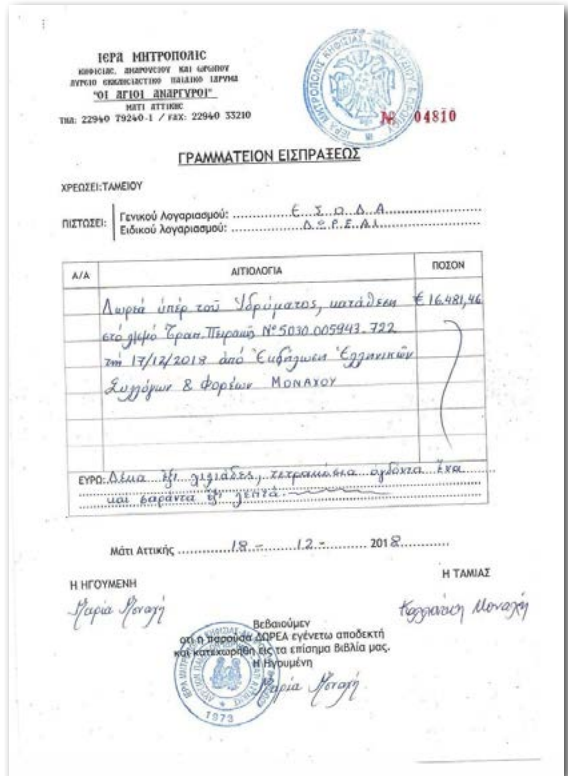 ΙΕΡΑ ΜΗΤΡΟΠΟΛΙΣ
ΚΗΦΙΣΙΑΣ, ΑΜΑΡΟΥΣΙΟΥ ΚΑΙ ΩΡΩΠΟΥ
ΛΥΡΕΙΟ ΕΚΚΛΗΣΙΑΣΤΙΚΟ ΠΑΙΔΙΚΟ ΙΔΡΥΜΑ
"ΟΙ ΑΓΙΟΙ ΑΝΑΡΓΥΡΟΙ"
ΜΑΤΙ ΑΤΤΙΚΗΣ
ΤΗΛ: 22940 79240-1 / FAX: 22940 33210
ΙΕΡΑ ΜΗΤΡΟΠΟΛΙΣ ΚΗΦΙΣΙΑΣ, ΑΜΑΡΟΥΣΙΟΥ & ΩΡΩΠΟΥ
№ 04810
ΓΡΑΜΜΑΤΕΙΟΝ ΕΙΣΠΡΑΞΕΩΣ
ΧΡΕΩΣΕΙ:ΤΑΜΕΙΟΥ
ΠΙΣΤΩΣΕΙ:
Γενικού Λογαριασμού: ΕΣΟΔΑ
Ειδικού λογαριασμού: ΔΩΡΕΑΙ
Α/Α ΑΙΤΙΟΛΟΓΙΑ ΠΟΣΟΝ
Δωρεά ὑπέρ τοῦ Ἱδρύματος, κατάθεση € 16.481,46
στό λ/μό Τραπ. Πειραιῶς Νº 5030.005943.722
τήν 17/12/2018 ἀπό Ἐκδήλωση Ἑλληνικῶν
Συλλόγων & Φορέων ΜΟΝΑΧΟΥ
ΕΥΡΩ: Δέκα ἕξι χιλιάδες, τετρακόσια ογδόντα ἕνα
και σαράντα ἕξι λεπτά.
Μάτι Αττικής 18 - 12 - 2018
Η ΗΓΟΥΜΕΝΗ Η ΤΑΜΙΑΣ
Μαρία Μοναχή Μοναχή
Βεβαιούμεν
οτι η παρούσα ΔΩΡΕΑ εγένετο αποδεκτή
και κατεχωρήθη εις τα επίσημα Βιβλία μας.
Η Ηγουμένη
Μαρία Μοναχή
1973